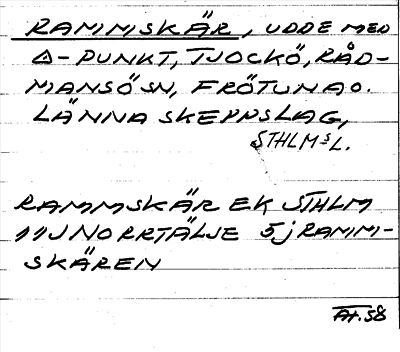 RAMMSKÄR, UDDE MED
△-PUNKT, TJOCKÖ, RÅD-
MANSÖ SN, FRÖTUNA O.
LÄNNA SKEPPSLAG,
STHLMS L.
RAMMSKÄR EK STHLM
11J NORRTÄLJE 5j RAMM-
SKÄREN